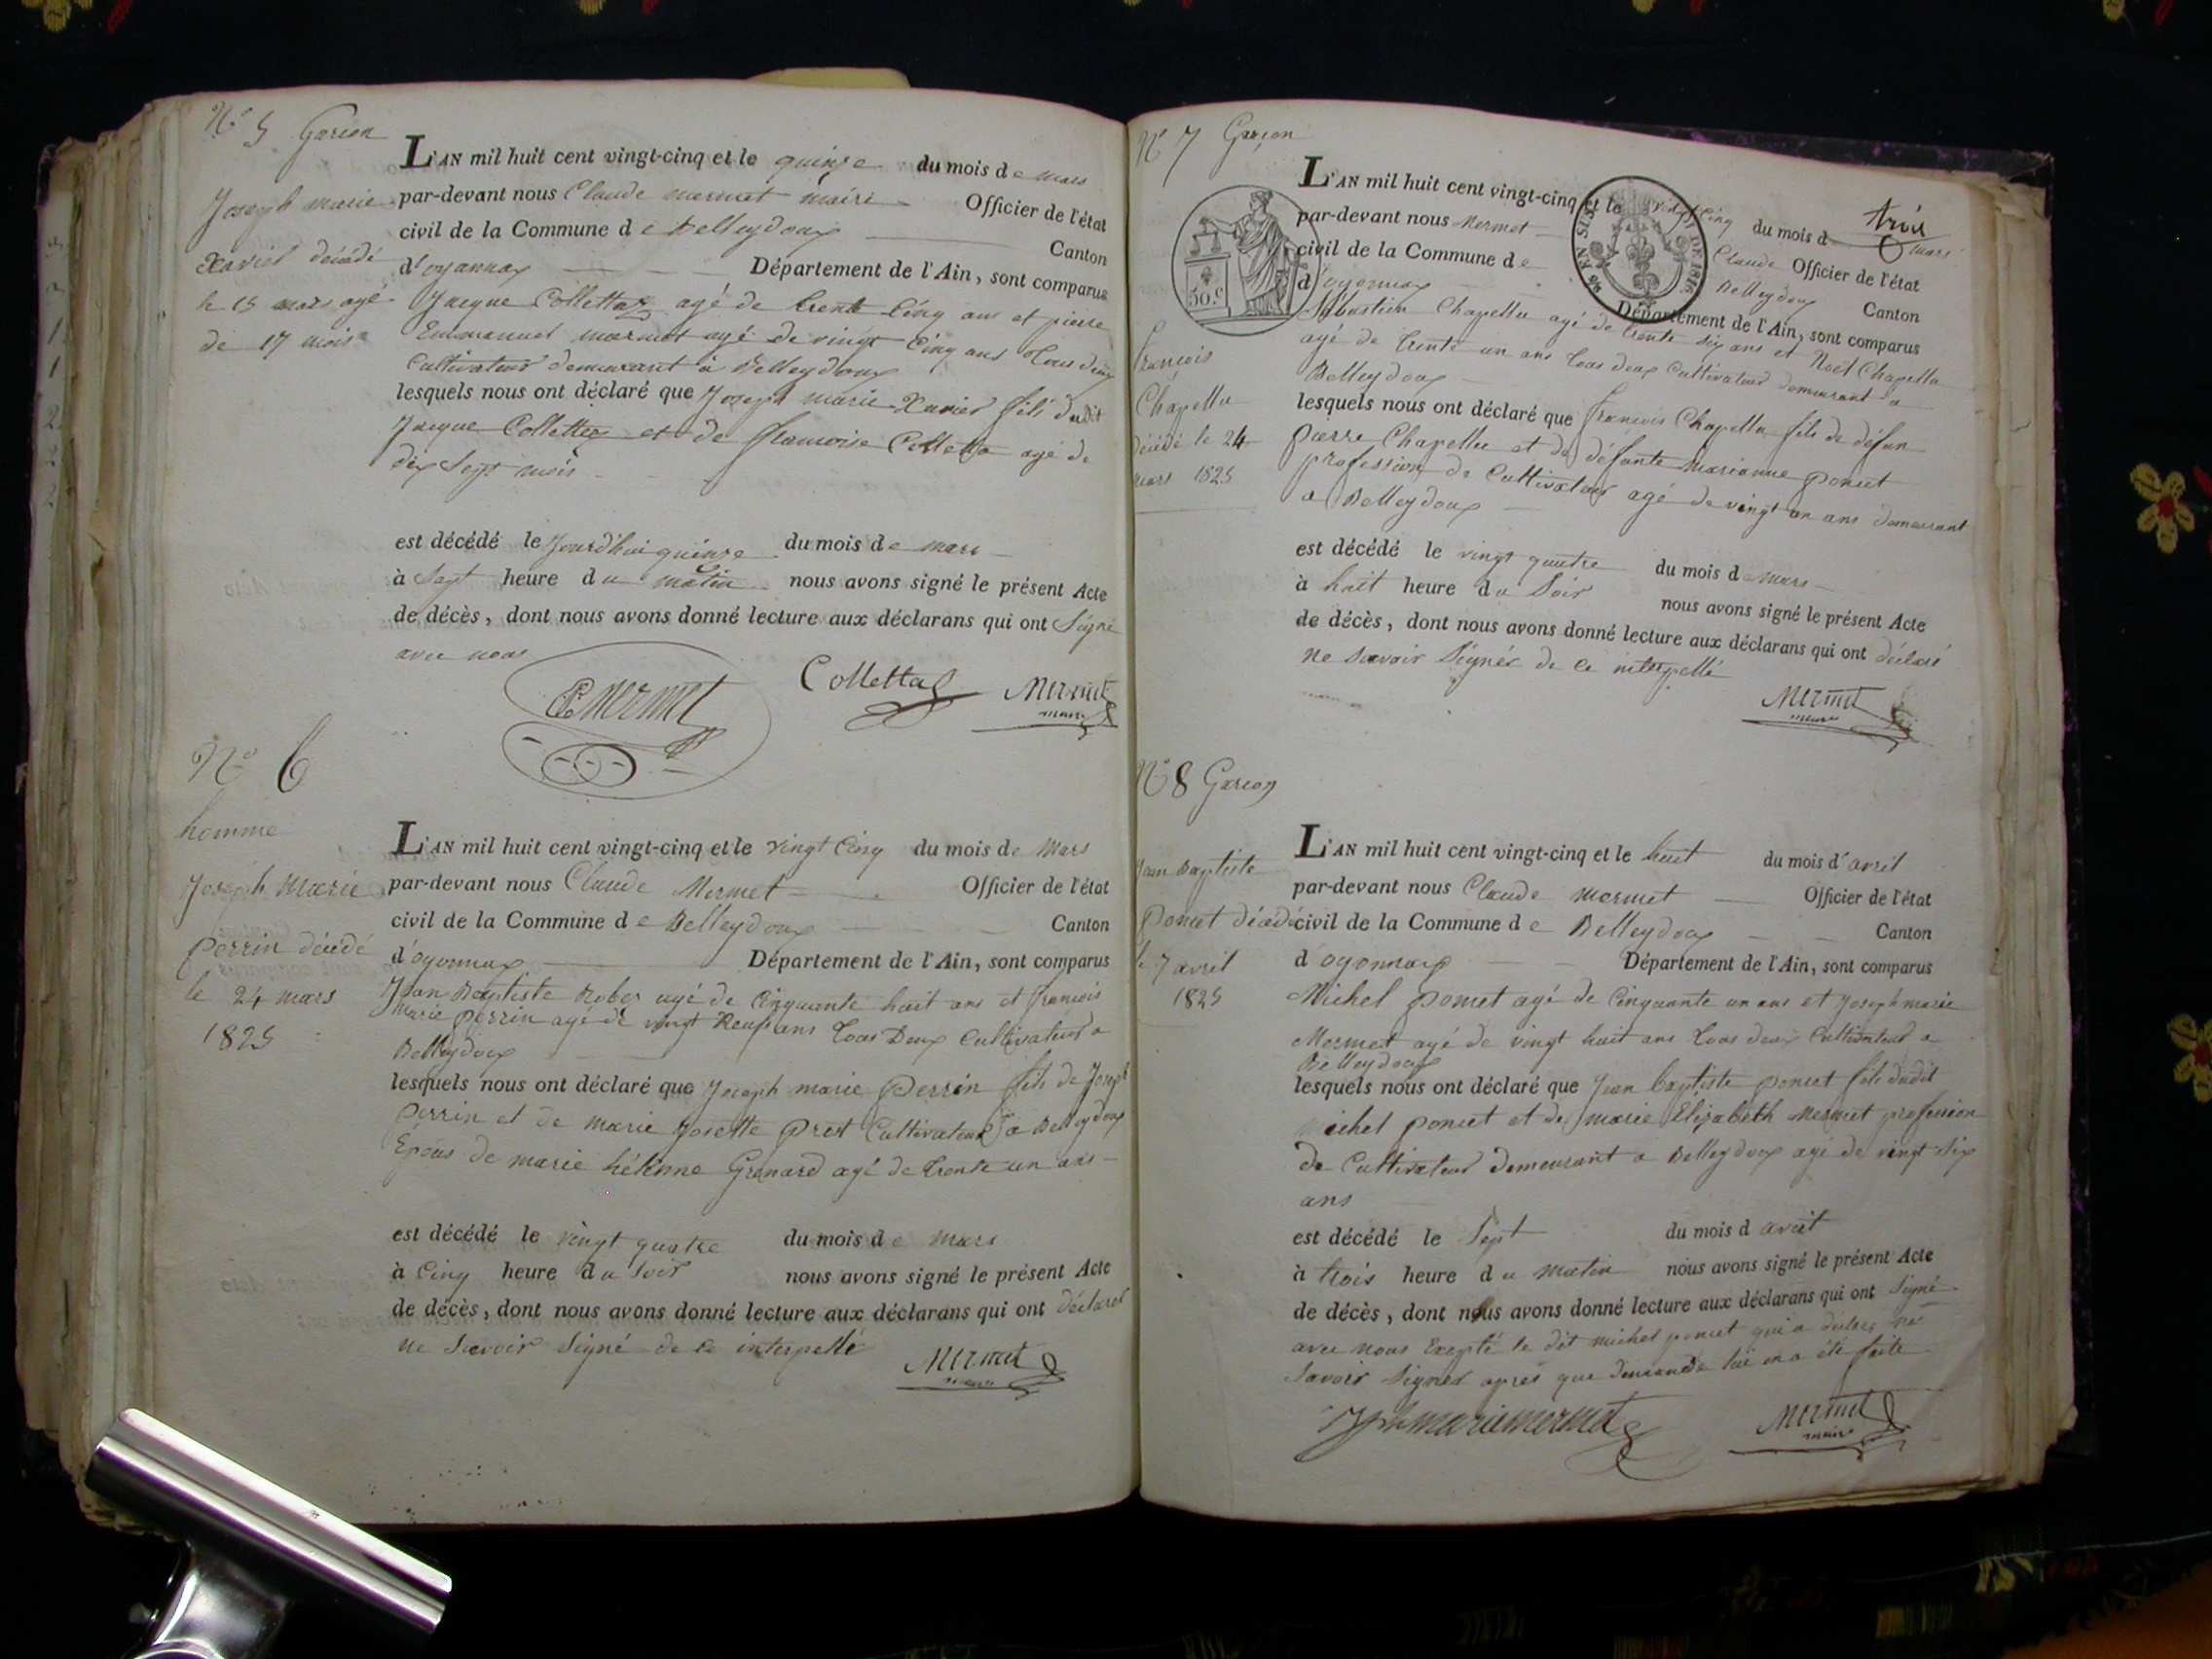 N° 5 Garcon
Joseph marie
Xavier décédé
le 15 mars agé
de 17 mois
L'AN mil huit cent vingt-cinq et le quinze du mois de mars
par-devant nous Claude mermet maire Officier de l'état
civil de la Commune de Belleydoux Canton
d'oyannax Département de l'Ain, sont comparus
Jacque Collettaz agé de trente Cinq ans et pierre
Emmanuel mermet agé de vingt Cinq ans tous deux
Cultivateur demeurant a Belleydoux
lesquels nous ont déclaré que Joseph marie Xavier fils dudit
Jacque Collettaz et de francoise Colletta agé de
dix Sept mois
est décédé le Jourd'hui quinze du mois de mars
à Sept heure du matin nous avons signé le présent Acte
de décès, dont nous avons donné lecture aux déclarans qui ont Signé
avec nous
PEMERMET Collettaz Mermet
maire
N° 6
homme
Joseph Marie
Perrin décédé
le 24 mars
1825
L'AN mil huit cent vingt-cinq et le vingt Cinq du mois de Mars
par-devant nous Claude Mermet Officier de l'état
civil de la Commune de Belleydoux Canton
d'oyonnax Département de l'Ain, sont comparus
Jean Baptiste Robez agé de Cinquante huit ans et francois
Marie perrin agé de vingt Neuf ans tous Deux Cultivateur a
Belleydoux
lesquels nous ont déclaré que Joseph marie Perrin fils de Joseph
Perrin et de marie Josette prest Cultivateur a Belleydoux
Epoux de marie hélenne Grenard agé de trente un ans
est décédé le vingt quatre du mois de mars
à Cinq heure du Soir nous avons signé le présent Acte
de décès, dont nous avons donné lecture aux déclarans qui ont déclaré
ne Savoir Signé de ce interpellé
Mermet
maire
N° 7 Garçon
50.c
EN SUS
DE 1816
trois
françois
Chapellu
décédé le 24
mars 1825
L'AN mil huit cent vingt-cinq et le vingt Cinq du mois de mars
par-devant nous Mermet Claude Officier de l'état
civil de la Commune de Belleydoux Canton
d'oyonnax Département de l'Ain, sont comparus
Sébastien Chapellu agé de trente six ans et Noël Chapellu
agé de trente un ans tous deux Cultivateur demeurant a
Belleydoux
lesquels nous ont déclaré que francois Chapellu fils de défun
pierre Chapellu et de défunte Marianne poncet
profession de Cultivateur agé de vingt un ans demeurant
a Belleydoux
est décédé le vingt quatre du mois de mars
à huit heure du Soir nous avons signé le présent Acte
de décès, dont nous avons donné lecture aux déclarans qui ont déclaré
ne Savoir Signér de ce interpellé
Mermet
maire
N° 8 Garcon
Jean Baptiste
Poncet décédé
le 7 avril
1825
L'AN mil huit cent vingt-cinq et le huit du mois d'avril
par-devant nous Claude Mermet Officier de l'état
civil de la Commune de Belleydoux Canton
d'oyonnax Département de l'Ain, sont comparus
Michel poncet agé de Cinquante un ans et Joseph marie
Mermet agé de vingt huit ans tous deux Cultivateur a
Belleydoux
lesquels nous ont déclaré que Jean baptiste poncet fils dudit
michel poncet et de marie Elizabeth Mermet profession
de Cultivateur demeurant a Belleydoux agé de vingt six
ans
est décédé le Sept du mois d avril
à trois heure du matin nous avons signé le présent Acte
de décès, dont nous avons donné lecture aux déclarans qui ont Signé
avec nous Excepté le dit michel poncet qui a ne
Savoir Signer aprés que demande lui en a été faite
Jph marie mermet Mermet
maire